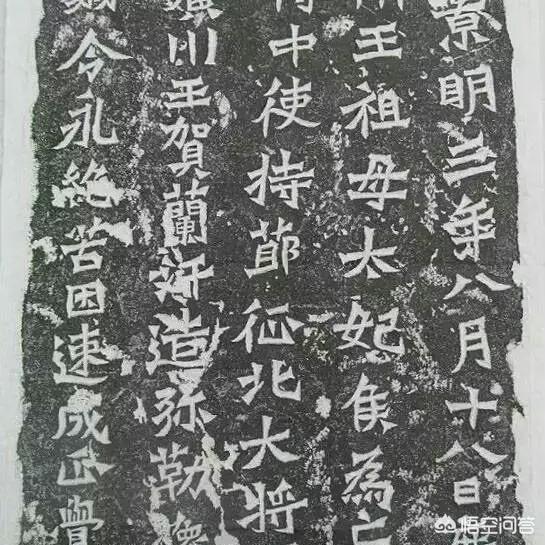 景明三年八月十八日廣
川王祖母太妃侯為亡
侍中使持節征北大將
廣川王賀蘭汗造弥勒像
令永絕苦因速成正覺
悟空问答